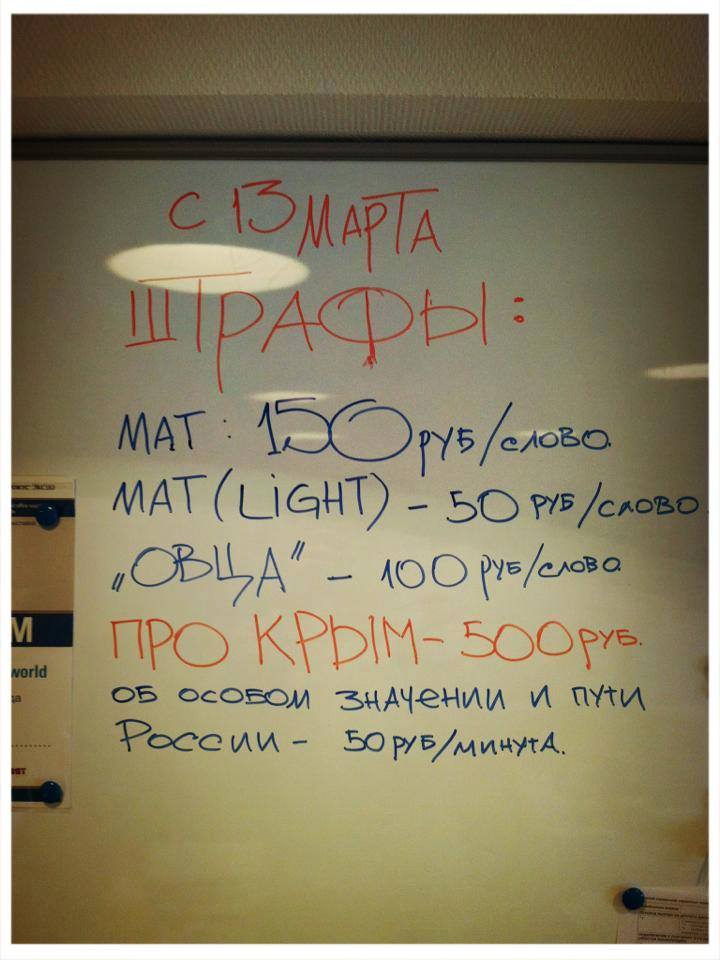 С 13 МАРТА
ШТРАФЫ:
МАТ: 150 РУБ/СЛОВО.
МАТ (LiGHT) – 50 РУБ/СЛОВО.
„ОВЦА" – 100 РУБ/СЛОВО.
ПРО КРЫМ – 500 РУБ.
ОБ ОСОБОМ ЗНАЧЕНИИ И ПУТИ
РОССИИ – 50 РУБ/МИНУТА.
М
world